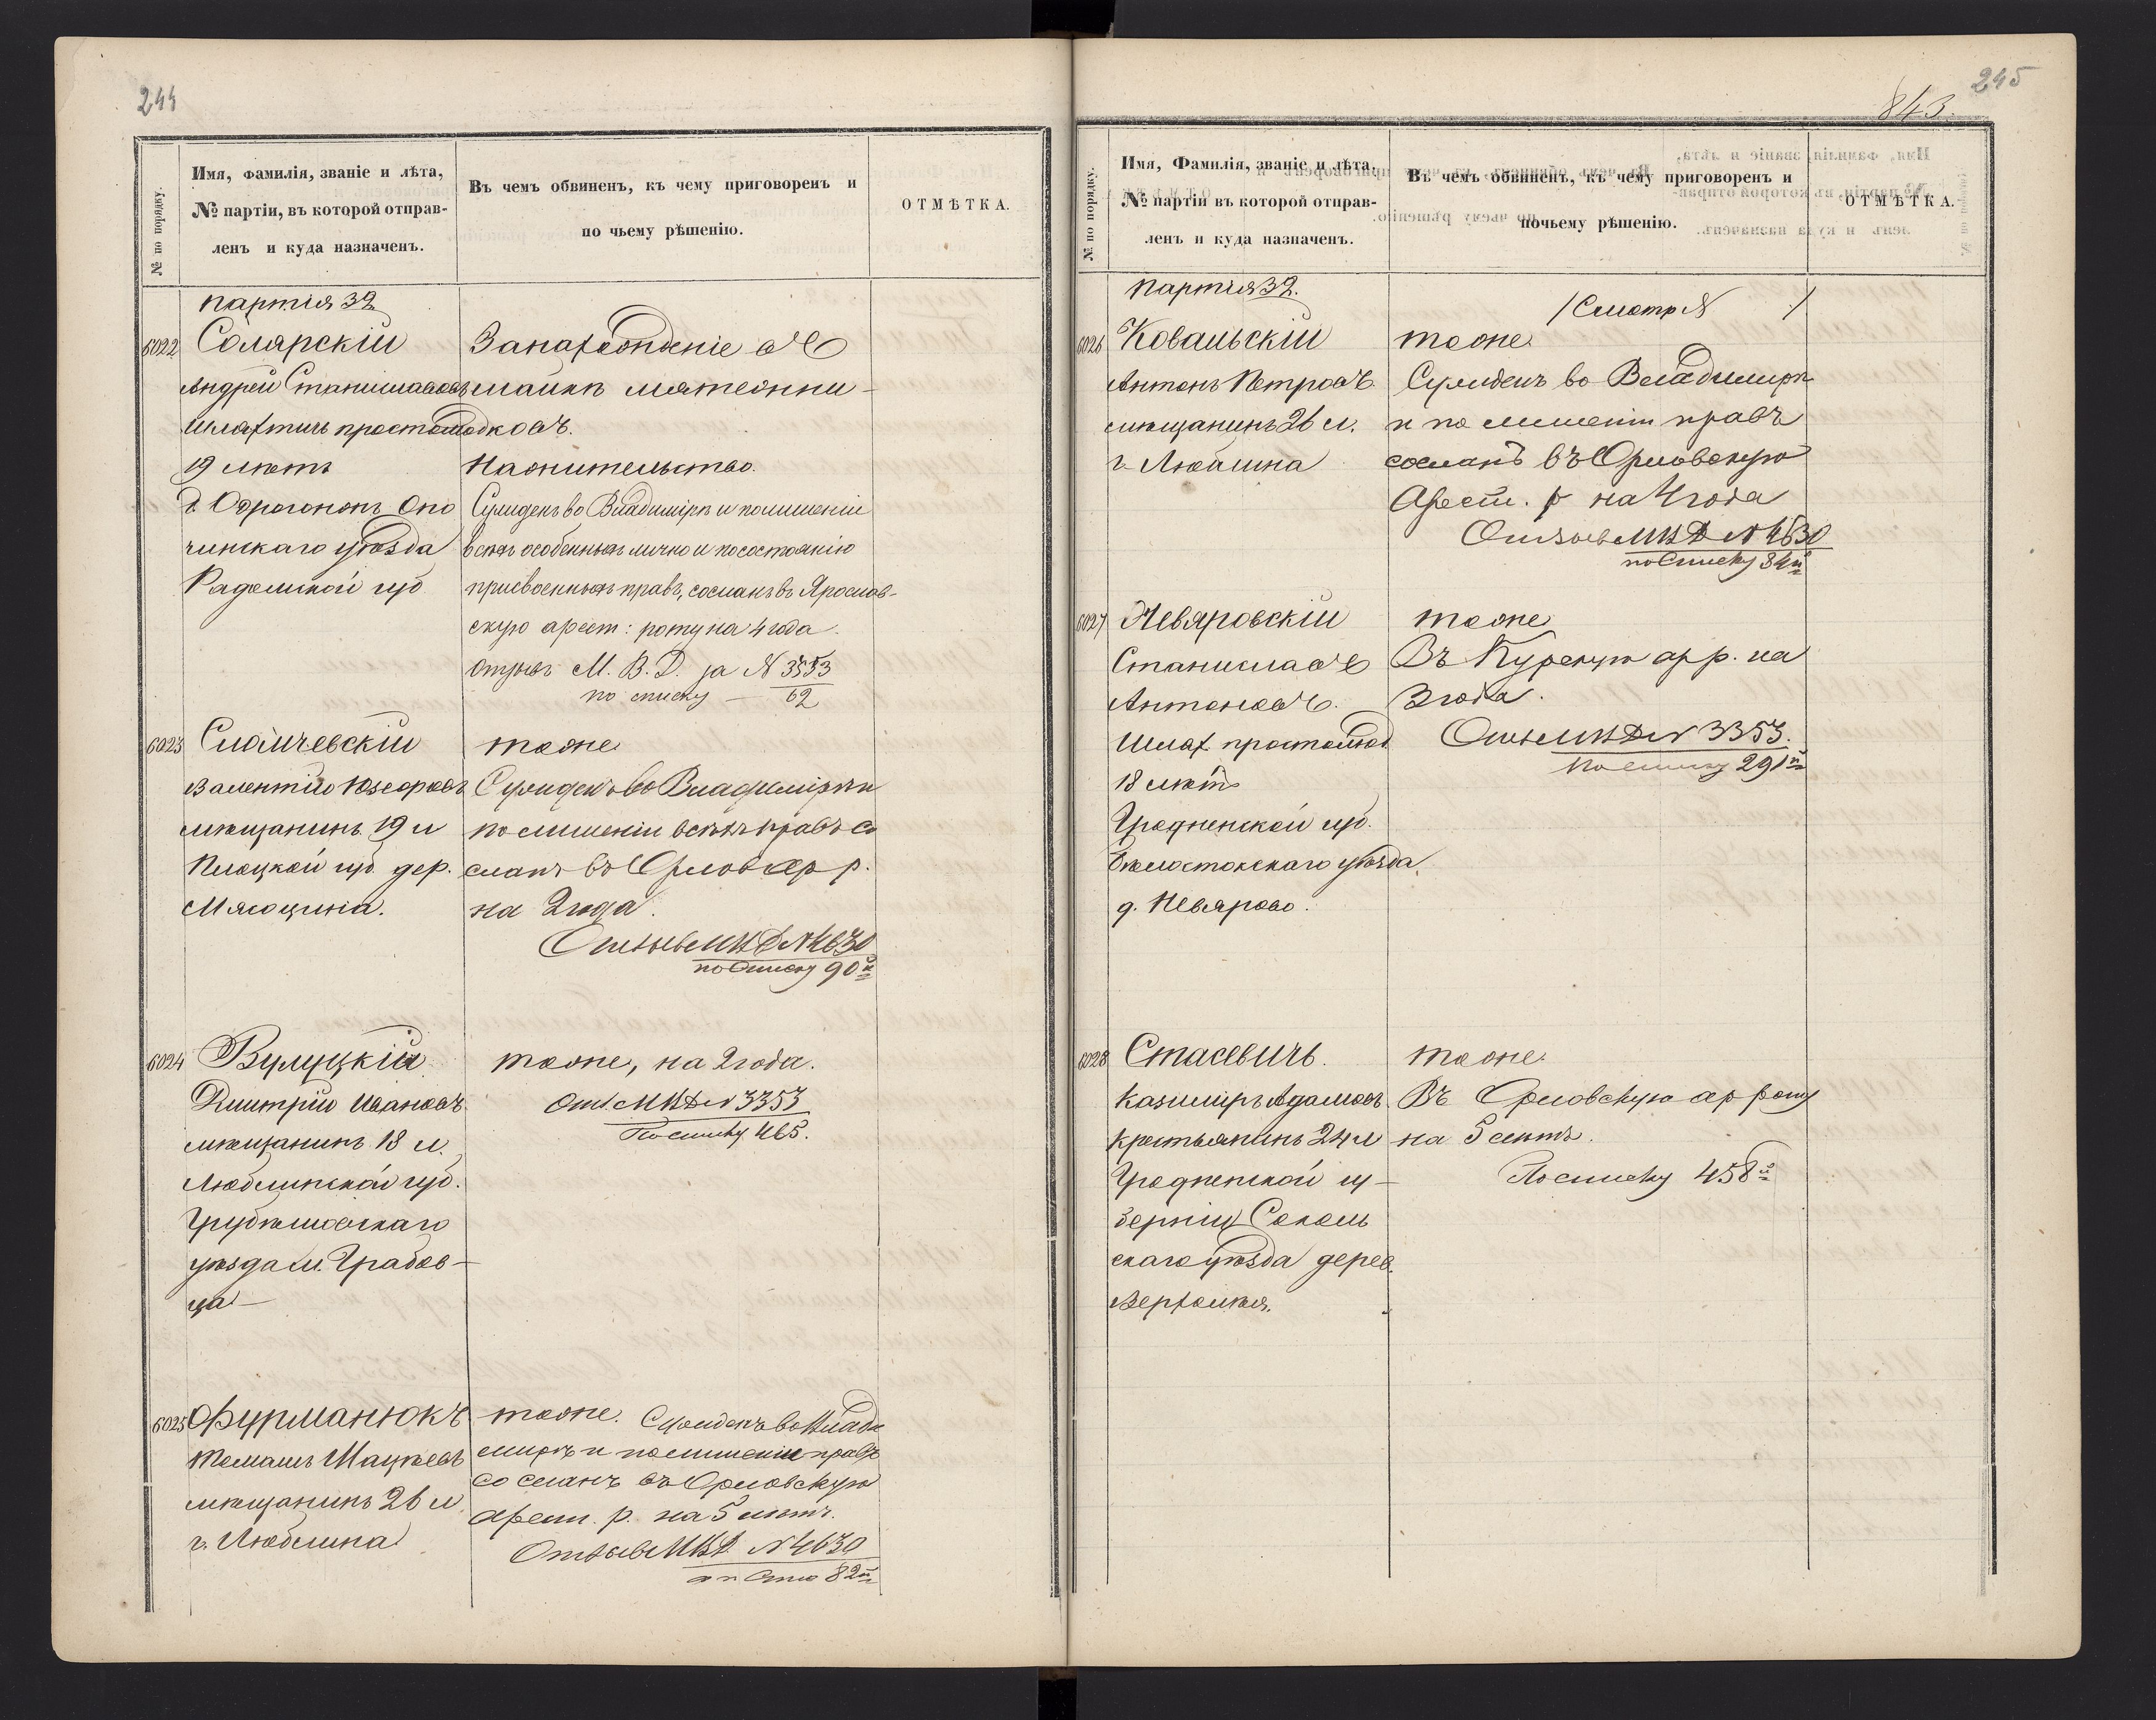 244
№ по порядку.
Имя, фамилія, званіе и лѣта,
№ партіи, въ которой отправ-
ленъ и куда назначенъ.
Въ чемъ обвиненъ, къ чему приговоренъ и
по чьему рѣшенію.
ОТМѢТКА.
партія 32
6022
Солярскій
Андрей Станиславовъ
шляхтичь простолюд
19 лѣтъ
Опо
чинскаго уѣзда
Радомской губ
Занахожденіе въ
шайкѣ мятежни-
ковъ.
На жительство.
Сужденъ во Владимірѣ и полишеніи
всѣхъ особенныхъ лично и посостоянію
присвоенныхъ правъ, сосланъ въ Ярослав-
скую арест: роту на 4 года
Отзывъ М. В. Д. за N 3353
по списку — 62
6023
Валентій Юзефовъ
мѣщанинъ 19 л
Плоцкой губ. дер.
тоже
Сужденъ во Владимірѣ и
по лишеніи всѣхъ правъ со
сланъ въ Орлов ар р.
на 2 года.
Отзывъ МВД N 4630
по Списку 90й
6024
Вулуцкій
Дмитрій Ивановъ
мѣщанинъ 18 л.
Люблинской губ.
Грубешовскаго
уѣзда м. Грабов-
ца —
тоже, на 2 года.
Отз. МВД N 3353
По списку 465.
6025
Фурманюкъ
Томашъ Мацѣевъ
мѣщанинъ 26 л.
г. Люблина
тоже. Сужденъ во Влади
мирѣ и по лишеніи правъ
сосланъ въ Орловскую
арест. р. на 5 лѣтъ.
Отзывъ МВД N 4630
82й
245
843.
№ по порядку.
Имя, Фамилія, званіе и лѣта,
№ партіи въ которой отправ-
ленъ и куда назначенъ.
Въ чемъ обвиненъ, къ чему приговоренъ и
почьему рѣшенію.
ОТМѢТКА.
партія 32.
/Смотр N /
6026
Ковальскій
Антонъ Петровъ
мѣщанинъ 26 л.
г. Люблина
тоже
Сужденъ во Владимирѣ
и по лишеніи правъ
сосланъ въ Орловскую
Арест. р на 4 года
Отзывъ МВД N 4630
по Списку 84й
6027
Невяровскій
Станиславъ
Антоновъ.
Шлях. простолюд
18 лѣтъ
Гродненской губ.
Бѣлостокскаго уѣзда,
д. Невярово.
тоже
Въ Курскую ар р. на
3 года.
Отзывъ МВД N 3353.
По списку 291й
6028
Стасевичъ.
Казимиръ Адамовъ
крестьянинъ 24 л
Гродненской гу-
берніи Соколь
скаго уѣзда дерев.
тоже.
Въ Орловскую ар роту
на 5 лѣтъ.
По списку 458й